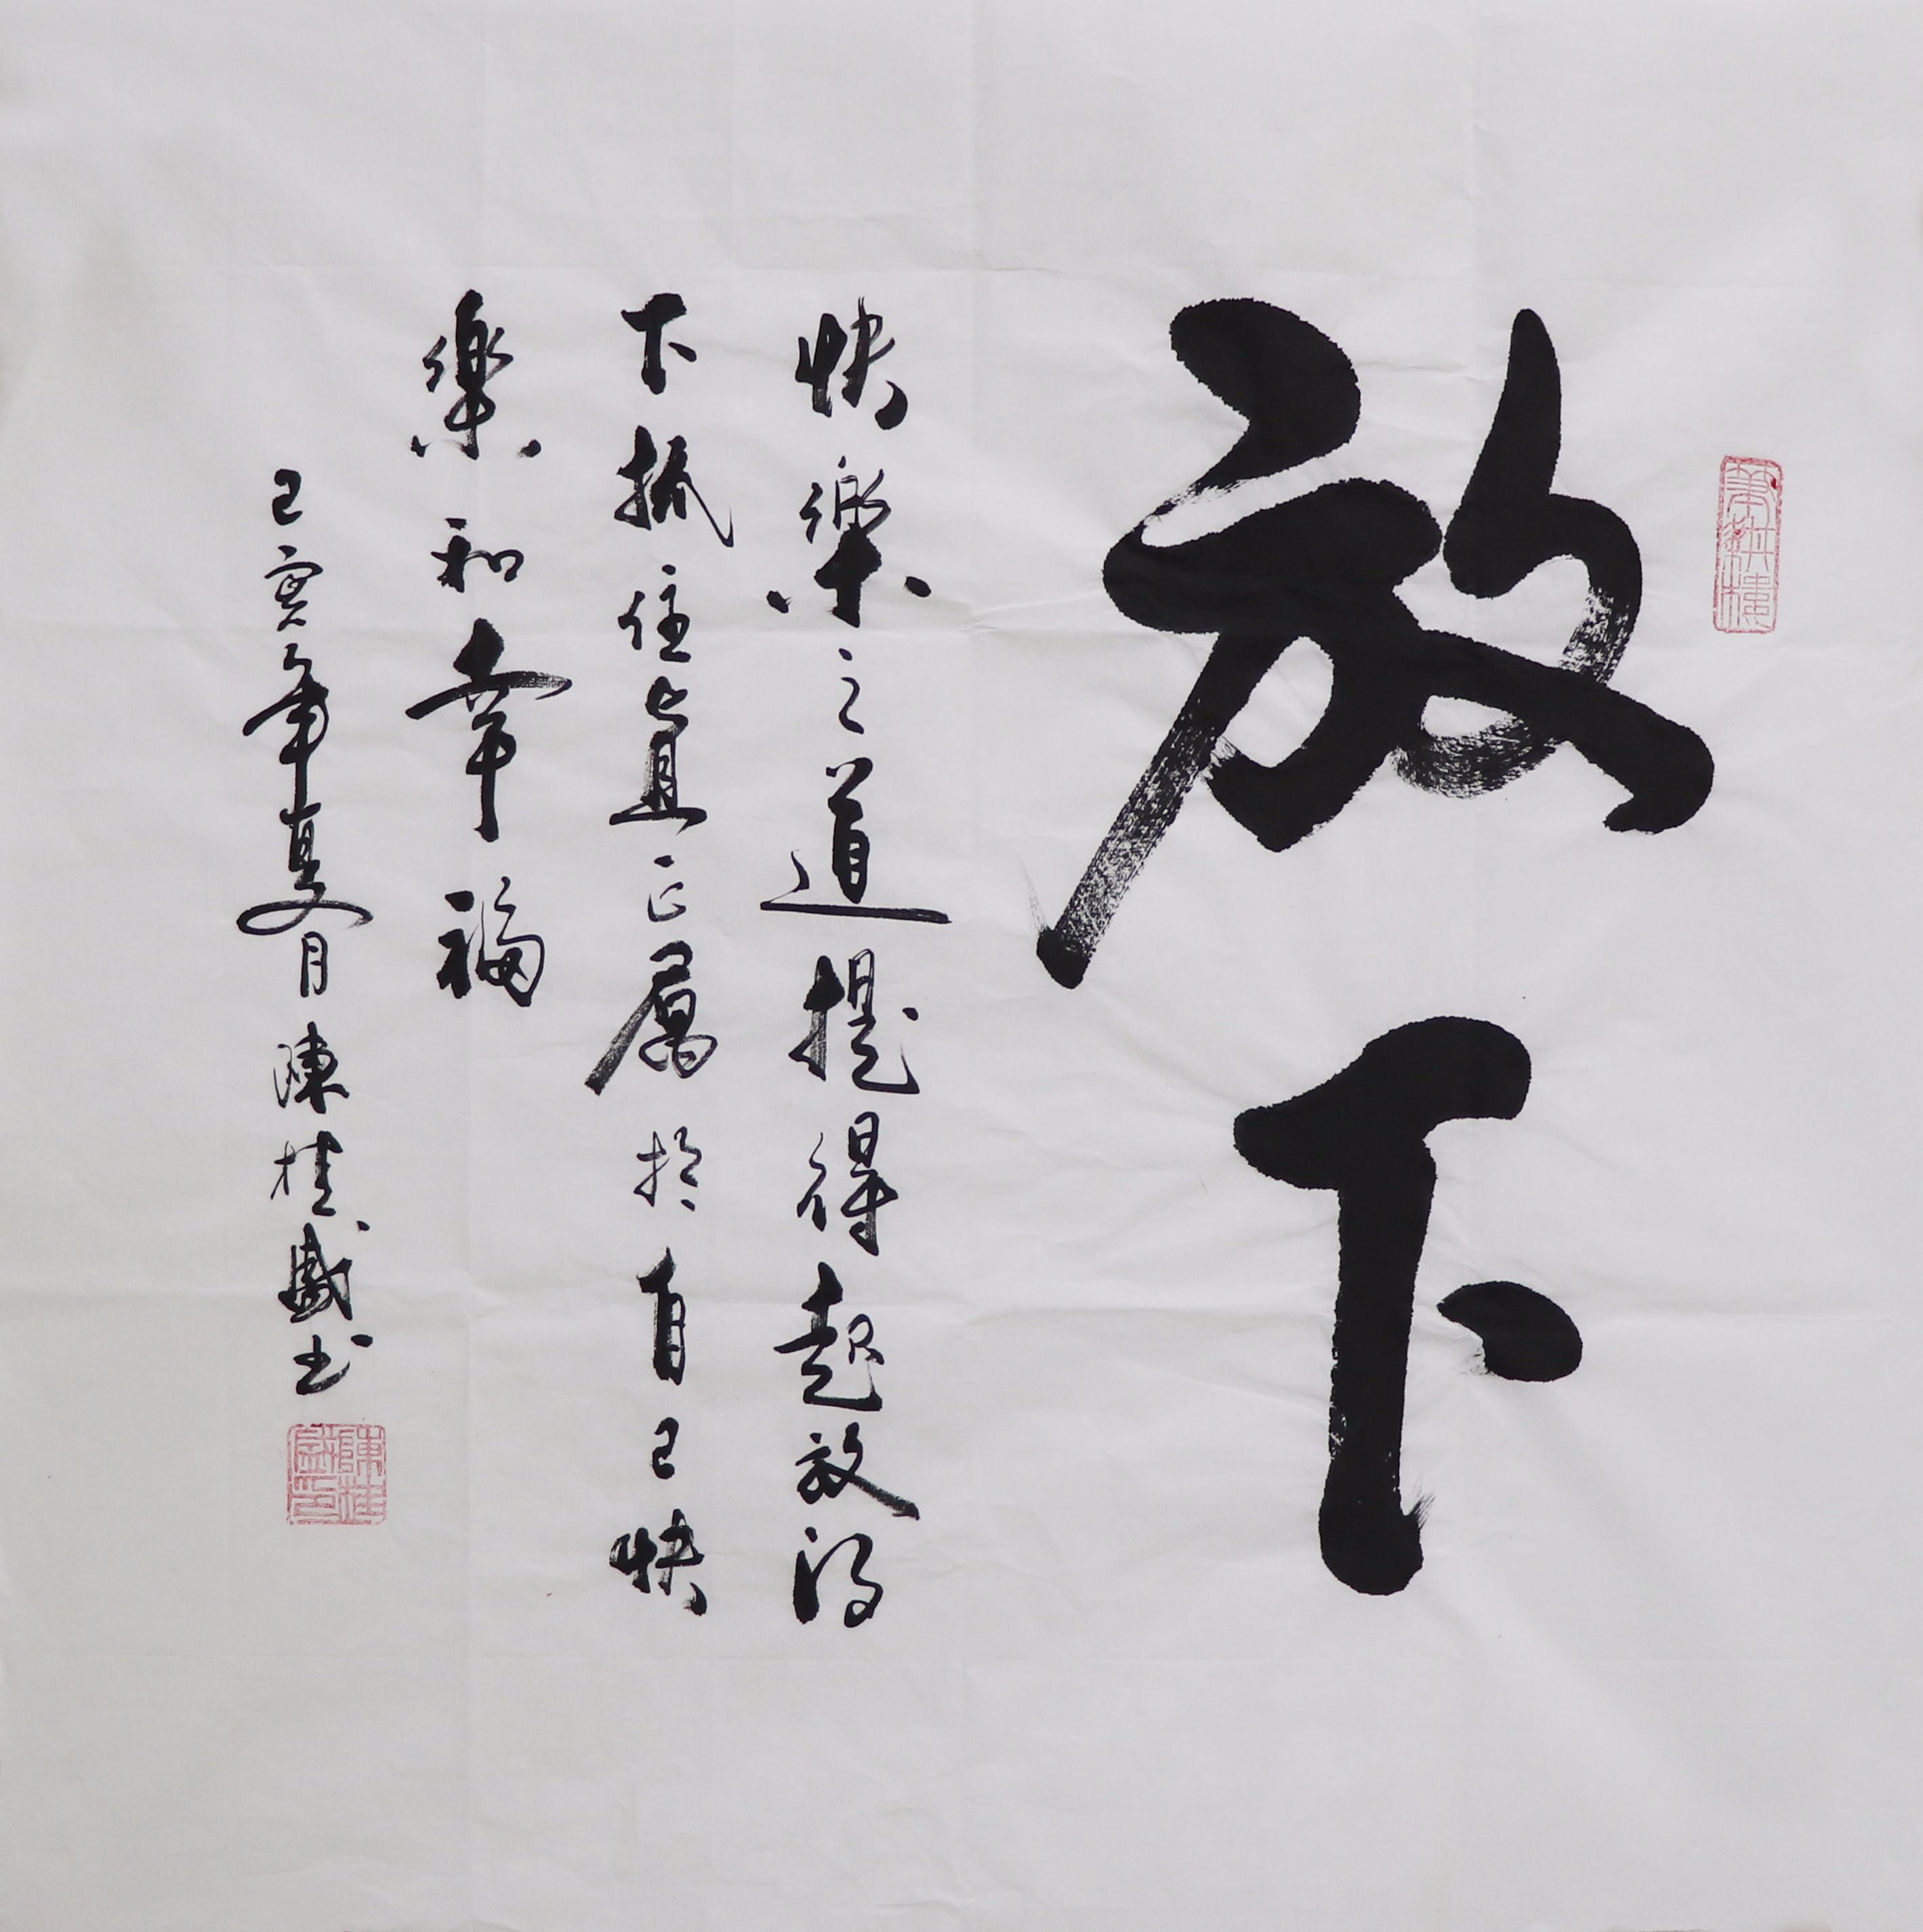 放下
快樂之道提得起放得
下抓住真正屬於自己快
樂和幸福
己亥年夏月陳桂盛書
陳桂盛印